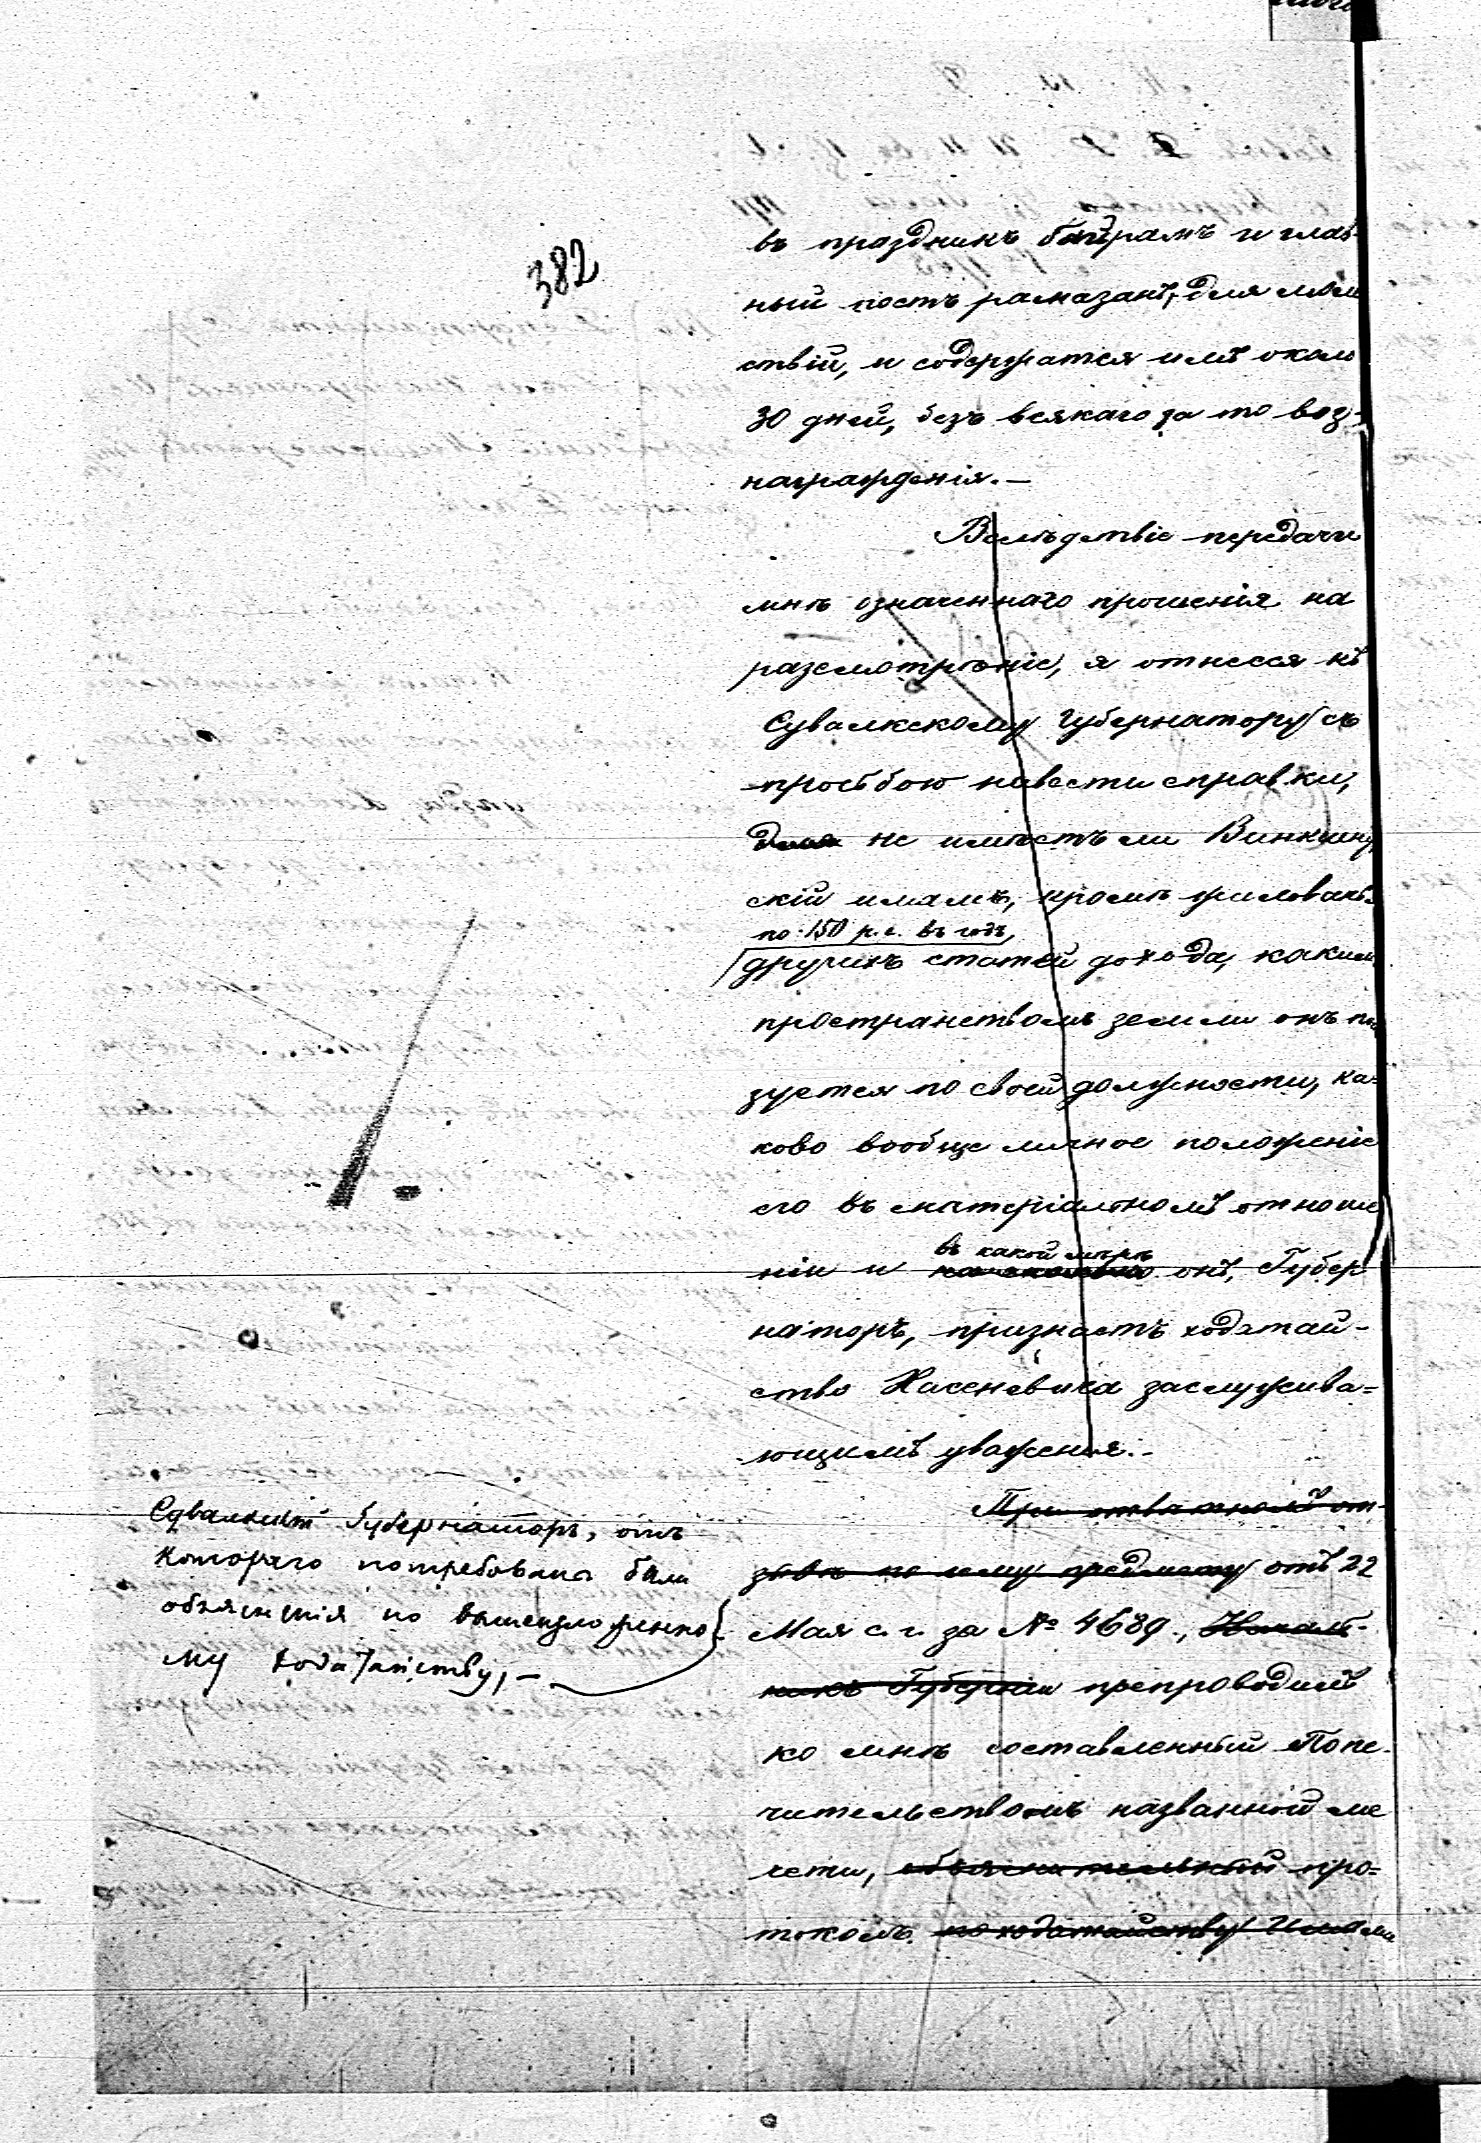 382
въ праздникъ байрамъ и глав
ный постъ рамазанъ, для
ствій, и содержатся имъ около
30 дней, безъ всякаго за то воз-
награжденія.—
Вслѣдствіе передачи
мнѣ означеннаго прошенія на
разсмотрѣніе, я отнесся къ
Сувалкскому Губернатору съ
просьбою навести справки,
не имѣетъ ли Винкшнуп
скій имамъ, кромѣ жалованья
по 150 р. с. въ годъ,
другихъ статей дохода, какимъ
пространствомъ земли онъ поль
зуется по своей должности, ка=
ково вообще личное положеніе
его въ матеріальномъ отноше
ніи и въ какой мѣрѣ онъ, Губер
наторъ, признаетъ ходатай-
ство Хасеневича заслужива=
ющимъ уваженія.-
При отвѣтномъ от-
зывѣ по сему предмету отъ 22
Мая с. г. за № 4689., Началь-
никъ Губерніи препроводилъ
ко мнѣ составленный Попе-
чительствомъ названной ме
чети, объяснительный про=
токолъ по ходатайству Имама
Сувалкскій Губернаторъ, отъ
котораго потребованы были
объясненія по вышеизложенно-
му ходатайству, —